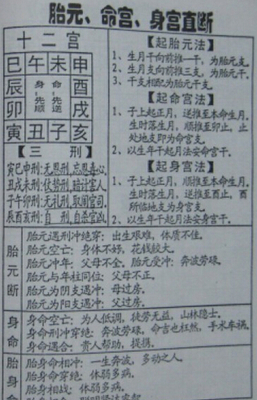 胎元、命宫、身宫直断
十二宫
巳午未申
辰 身-先顺 命-先逆 酉
卯 戌
寅丑子亥
【三刑】
寅巳申刑:无恩刑,忘恩负心。
丑戌未刑:仗势刑,暗计害人。
子午卯刑:无礼刑,
辰酉亥刑:自刑,自杀官灾
【起胎元法】
1、生月干向前推一,为胎元干。
2、生月支向前推三支,为胎元支。
3、干支相配为胎元干支。
【起命宫法】
1、子上起正月,逆推至本命生月,
生时落生月,顺推至卯止,止
处地支即为命宫支。
2、以生年干起月法安命宫干。
【起身宫法】
1、子上起正月,顺推至本命生月,
生时落生月,逆推至酉止,酉
所临地支为身宫支。
2、以生年干起月法安身宫干。
胎元断
胎元遇刑冲绝穿:出生艰难,体质不佳。
胎元空亡:身体不好,花钱较大。
胎元冲年:父母不全,胎元受冲:奔波劳碌。
胎元与年柱同位:父母不正。
胎元为阴支遇冲:母过房。
胎元为阳支遇冲:父过房。
身命
身命空亡:为人低调,徒劳无益,山林隐士。
身命刑冲穿绝:奔波劳碌,命吉也枉然,手水牵祸。
身命遇合:贵人帮助,提偶。
胎身命
胎身命相冲:一生奔波,多动之人。
胎身命穿绝:体弱多病。
胎身相战:体弱多病。